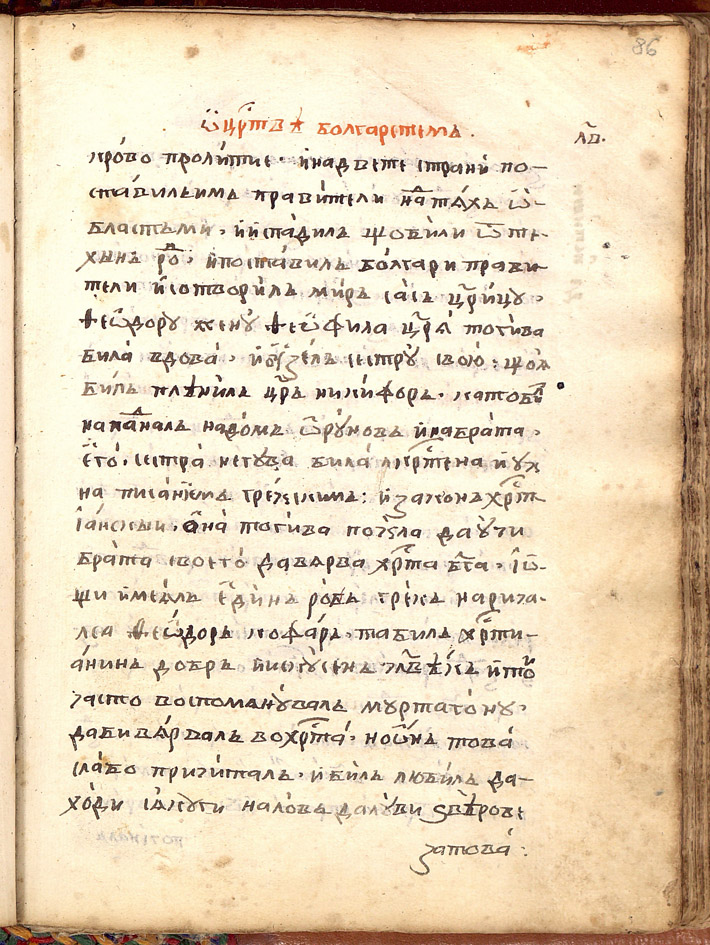 86
ѿ црⷭ҇твѣ болгарстемъ.
л҃в.
крово пролитїе· и҆ на двете страни по-
ставилъ имъ правители на таⷯхъ ѡ-
бластъми, и҆ испадилъ що били ѿ те-
хынъ роⷣ, и҆ поставилъ болгари прави-
тели и҆ сотворилъ миръ сасъ цр҃ицу,
ѳеѡдору жену ѳеѡфила цр҃ѧ тогива
била вдова, и҆ ѹ҆зелъ сестру свою; що ѧ
билъ плѣнилъ цр҃ъ никифоръ, като биⷧ
нападналъ на домъ ѿ руновъ и҆ на брата,
е҆го, сестра негува била кⷬ҇тена и҆ ѹ҆ч
на писанїемъ греческимъ; и҆ законъ хрⷭ҇т
їанскый, ѡ҆на тогива почела да ѹ҆чи
брата своего да вѧрва хрⷭ҇та бг҃а, ѡ҆-
щи и҆меѧлъ е҆динъ робъ грекъ нарича-
лсѧ ѳеѡдоръ кофаръ, та билъ хрⷭ҇ти-
анинъ добръ и҆ искусенъ чл҃вѣкъ и҆ тои
често воспоманувалъ муртагону,
да би вѧрвалъ во хрⷭ҇та, но ѡ҆нъ това
слабо причиталъ, и҆ билъ любилъ да-
ходи секуги на ловъ да луви ѕвѣрове
затова: